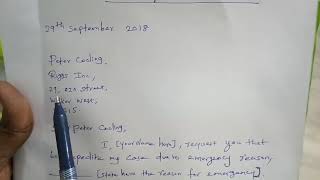 29th September 2018
Peter Cooling,
Riggs Inc,
21, street,
West,
Peter Cooling,
I, [your name here], request you that
expedite my case due to emergency reason,
[state here the reason for emergency].